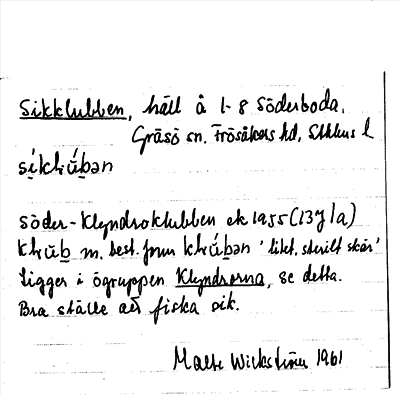 Sikklubben, häll å 1-8 Söderboda,
Gräsö sn. Frösåkers hd, Sthlms l
Söder-Klyndroklubben ek 1955 (13J1a)
m. best. form
Ligger i ögruppen Klyndrorna, se detta.
Bra ställe att fiska sik.
Malte Wickström 1961